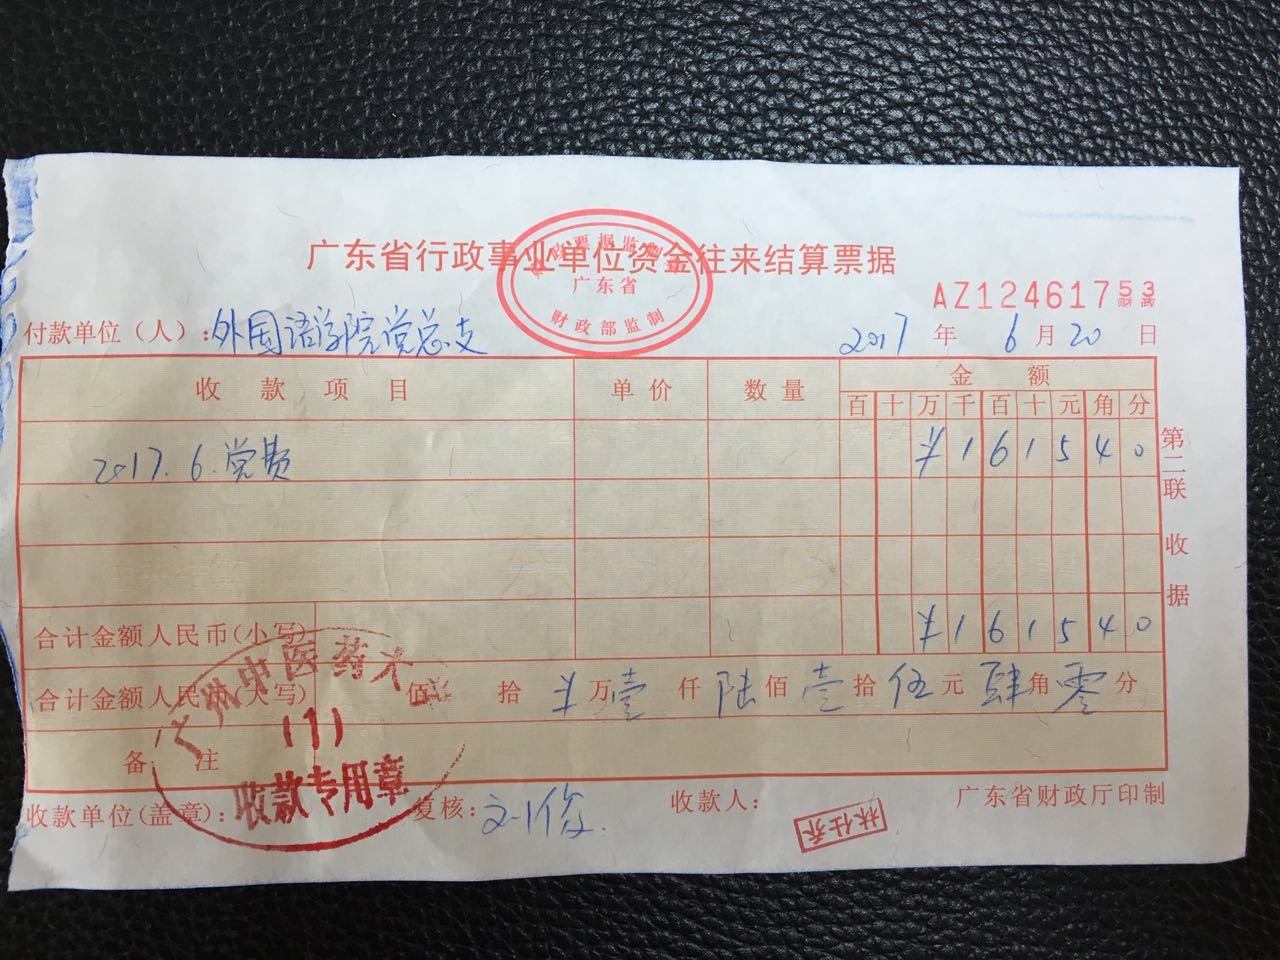 广东省行政事业单位资金往来结算票据
财政票据监制章
广东省
财政部监制
AZ12461753
财政
付款单位（人）：外国语学院党总支 2017 年 6 月 20 日
收款项目 单价 数量 金额
百 十 万 千 百 十 元 角 分
2017.6.党费 ¥ 1 6 1 5 4 0
合计金额人民币(小写) ¥ 1 6 1 5 4 0
合计金额人民币(大写) 佰 拾 ¥ 万 壹 仟 陆 佰 壹 拾 伍 元 肆 角 零 分
备注
广州中医药大
(1)
收款专用章
收款单位(盖章)： 复核： 收款人： 广东省财政厅印制
林仕乔
第二联 收据